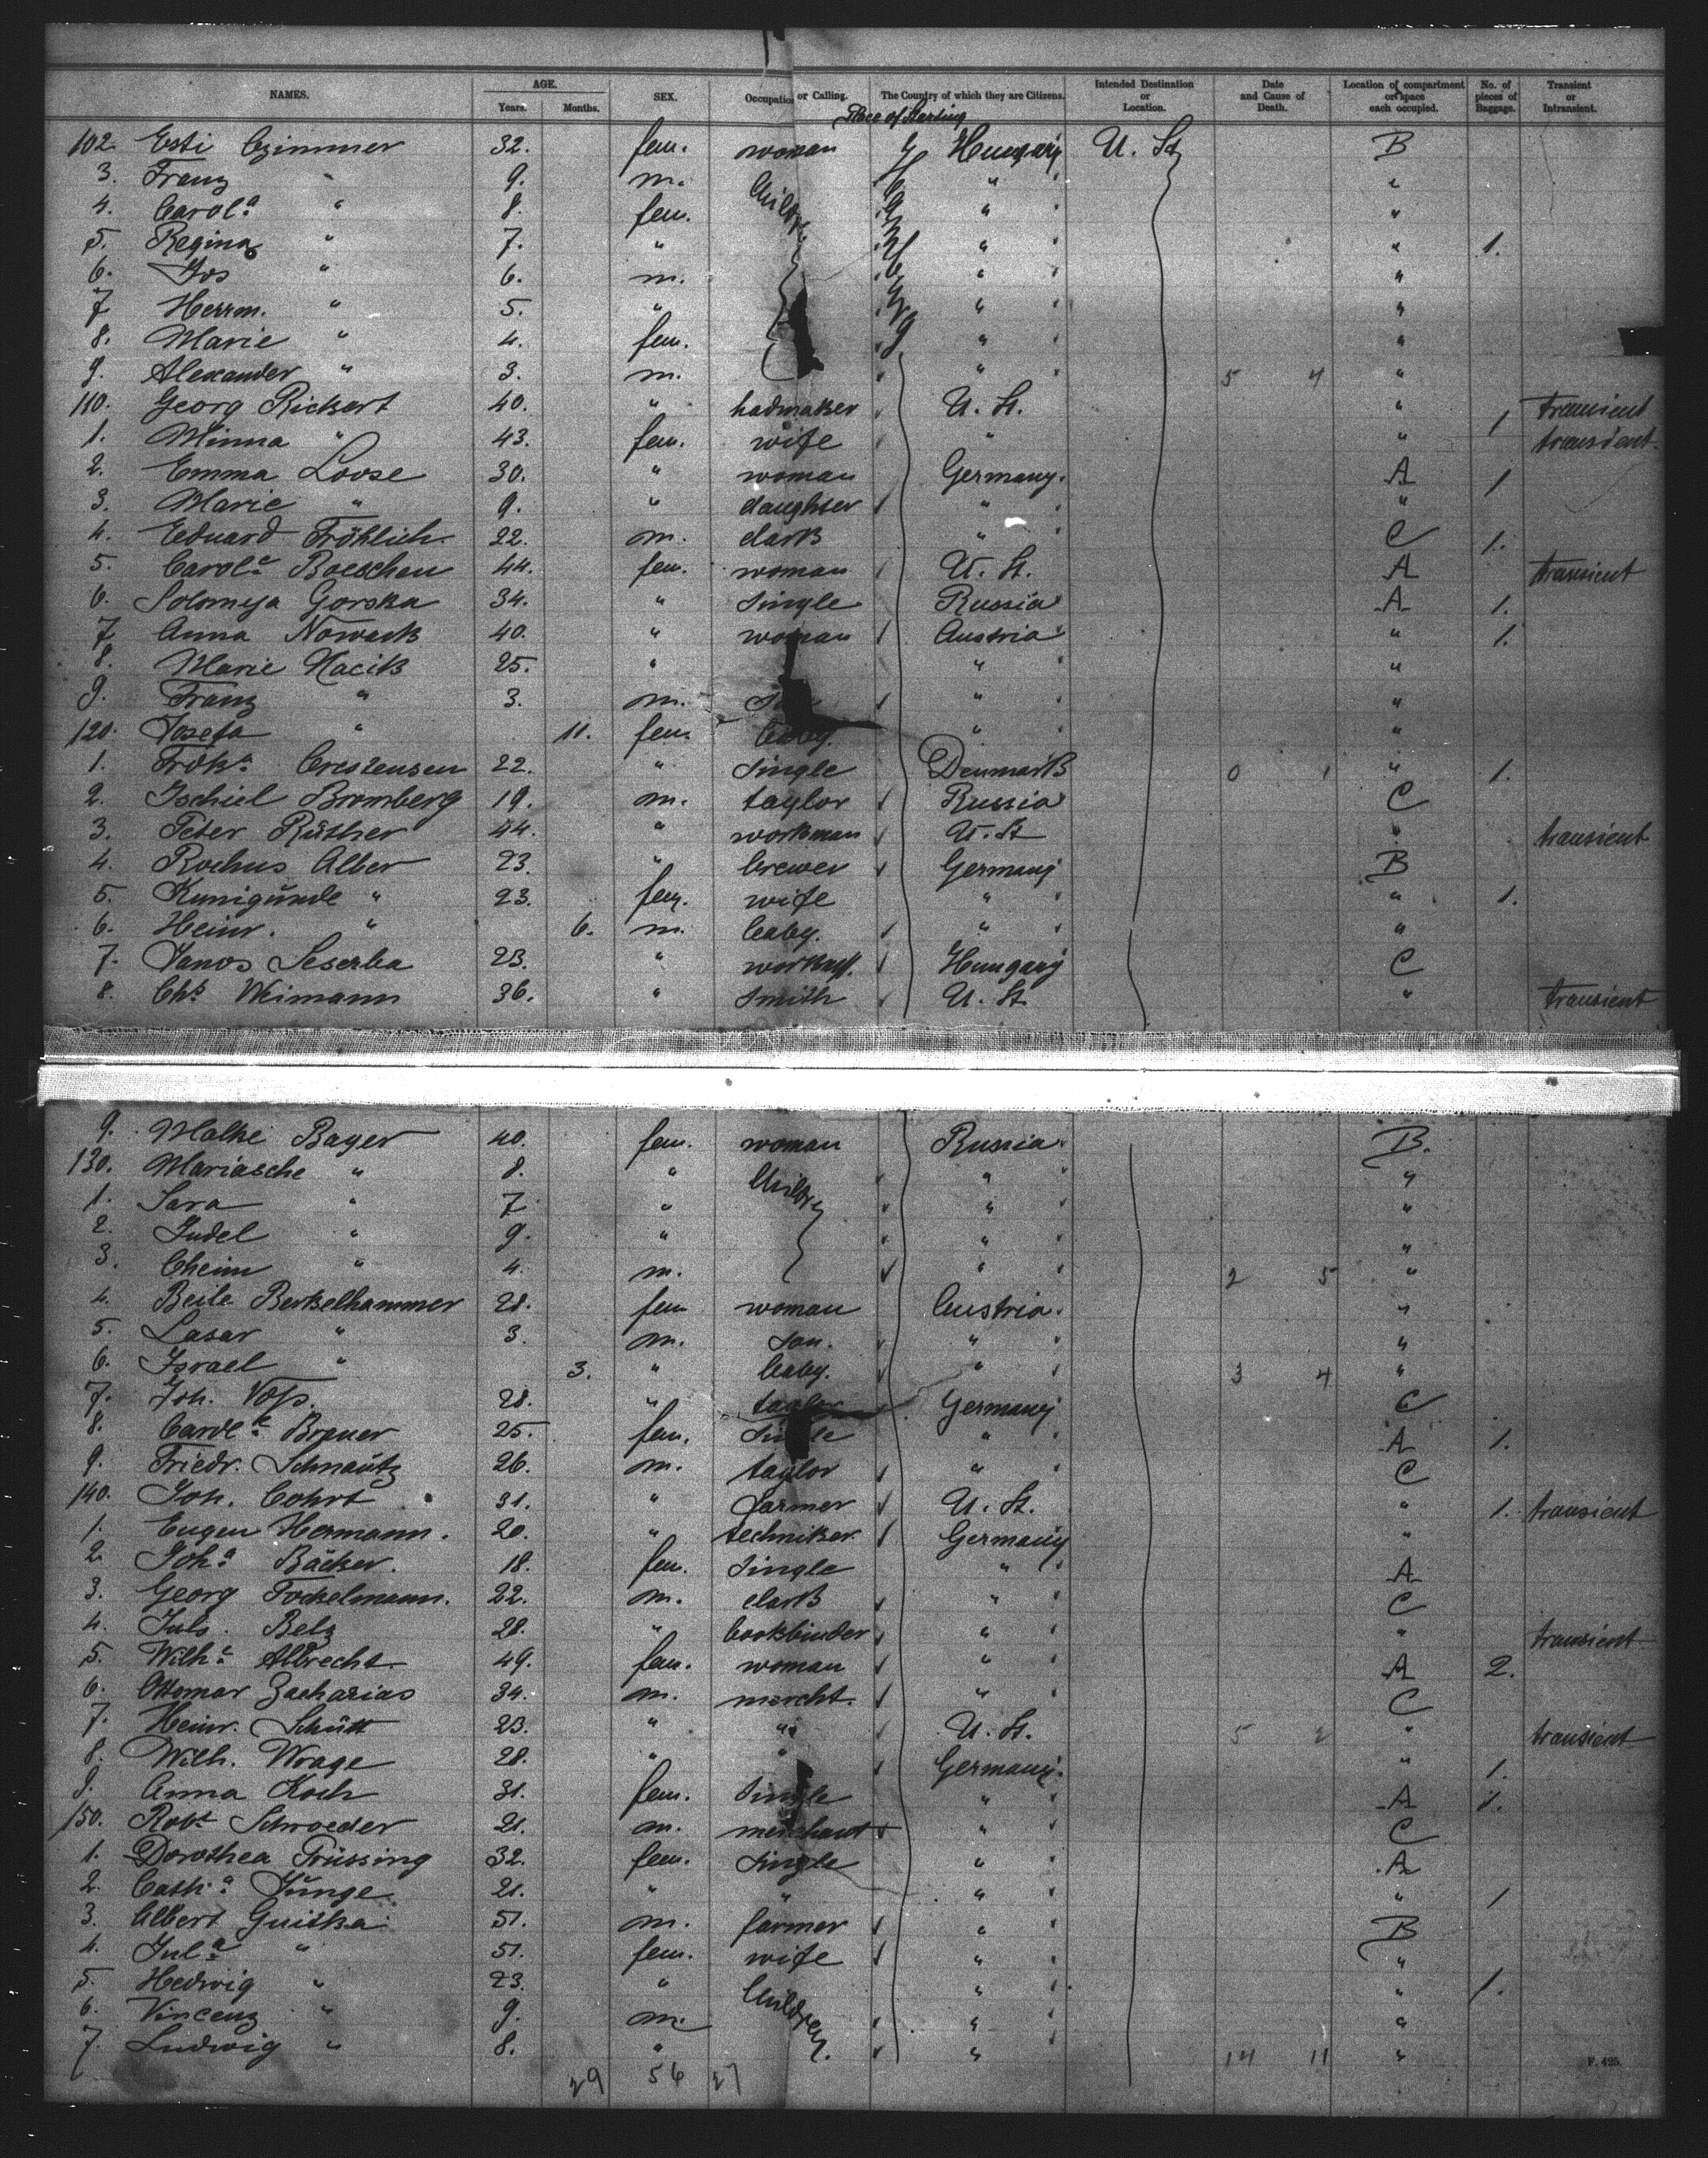 NAMES. AGE. Years. Months. SEX. Occupation or Calling. The Country of which they are Citizens. Intended Destination or Location. Date and Cause of Death. Location of compartment or space each occupied. No. of pieces of Baggage. Transient or Intransient.
Place of Starting
102. Esti Czimmer 32. fem. woman Hungary U. St. B
3. Franz " 9. m. Children " "
4. Carola " 8. fem. " "
5. Regina " 7. " " " 1.
6. Jos " 6. m. " "
7 Herrm. " 5. " " "
8. Marie " 4. fem. " "
9. Alexander " 3. m. " 5 4 "
110. Georg Rickert 40. " hadmaker U. St. " 1 transient
1. Minna " 43. fem. wife " " transient
2. Emma Loose 30. " woman Germany. A 1
3. Marie " 9. " daughter " "
4. Eduard Fröhlich. 22. m. clark " C 1.
5. Carole Boeschen 44. fem. woman U. St. A transient
6. Solomeja Gorska 34. " single Russia A 1.
7 Anna Nowack 40. " woman Austria " 1.
8. Marie Macik 25. " " "
9. Franz " 3. m. son " "
120. Josefa " 11. fem. baby. " "
1. Crestensen 22. " single Denmark 0 1 " 1.
2. Ischiel Bromberg 19. m. taylor Russia C
3. Peter Rüther 44. " workman U. St " transient
4. Rochus Alber 23. " brewer Germany B
5. Kunigunde " 23. fem. wife " " 1.
6. Heinr. " 6. m. baby. " "
7. Janos Seserba 23. " workm. Hungary C
8. Chs Weimann 36. " smith U. St " transient
9. Malke Bayer 40. fem. woman Russia B.
130. Mariasche " 8. " Childr. " "
1. Sara " 7 " " "
2. Judel " 9. " " "
3. Cheim " 4. m. " 2 5 "
4. Beile Berkelhammer 28. fem woman Austria. "
5. Lasar " 3. m. son. " "
6. Israel " 3. " baby. " 3 4 "
7. Joh. Voss. 28. " taylor Germany C
8. Carole Brauer 25. fem. single " A 1.
9. Friedr. Schnautz 26. m. taylor " C
140. Joh. Cohrt 31. " farmer U. St. " 1. transient
1. Eugen Hermann. 20. " techniker Germany "
2. Joha Bäcker. 18. fem. single " A
3. Georg Fockelmann. 22. m. clark " C
4. Juls. Belz 28. " bookbinder " " transient
5. Wilhe Albrecht 49. fem. woman " A 2.
6. Ottomar Zacharias 34. m. mercht. " C
7. Heinr. Schütt 23. " " U. St. 5 2 " transient
8. Wilh. Wrage 28. " " Germany. " 1.
9. Anna Koch 31. fem. single " A 1.
150. Robt Schroeder 21. m. merchant " C
1. Dorothea Früssing 32. fem. single " A
2. Catha Junge 21. " " " " 1
3. Albert Guitka 51. m. farmer " B
4. Jula " 51. fem. wife " "
5. Hedwig " 23. " Children. " " 1.
6. Vincenz " 9. m. " "
7. Ludwig " 8. " " 14 11 "
29 56 27
F. 425.